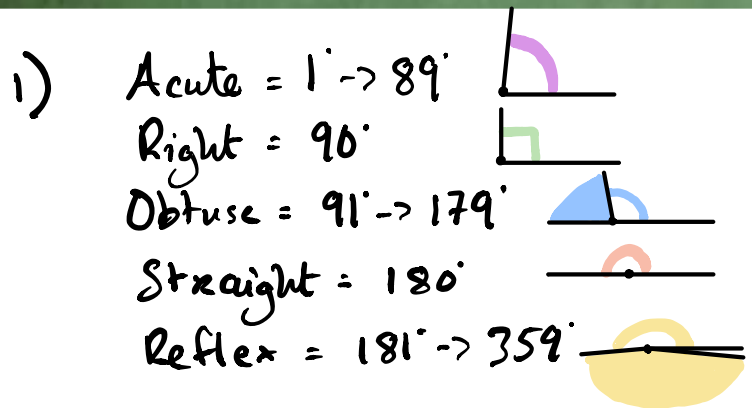 1) Acute = 1° -> 89°
Right = 90°
Obtuse = 91° -> 179°
Straight = 180°
Reflex = 181° -> 359°